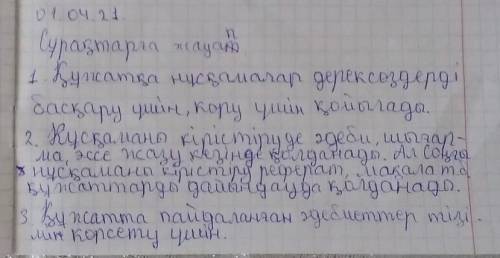 01.04.21.
Сурақтарға жауап
1. Құжатқа нұсқамалар дереккөздерді
басқару үшін, көру үшін қойылады.
2. Нұсқаманы кірістіруде әдеби, шығар-
ма, эссе жазу кезінде қолданады. Ал Соңғы
нұсқаманы кірістіру реферат, мақала т.б
құжаттарды дайындауда қолданады.
3. Құжатта пайдаланған әдебиеттер тізі-
мін көрсету үшін.